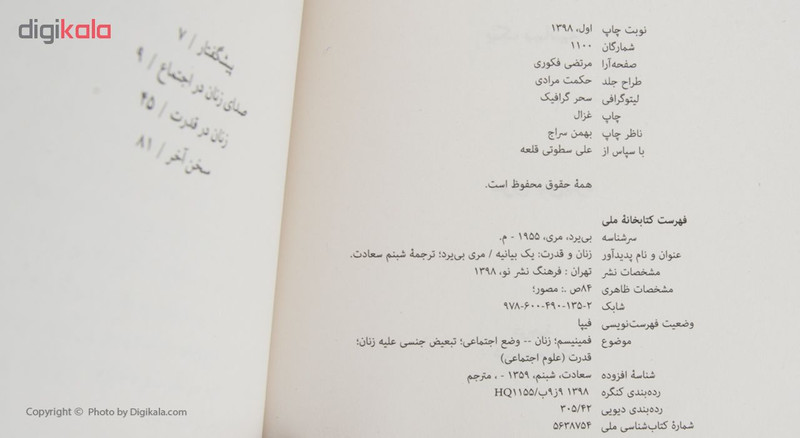 digikala
نوبت چاپ اول، ۱۳۹۸
شمارگان ۱۱۰۰
صفحه‌آرا مرتضی فکوری
طراح جلد حکمت مرادی
لیتوگرافی سحر گرافیک
چاپ غزال
ناظر چاپ بهمن سراج
با سپاس از علی سطوتی قلعه
همهٔ حقوق محفوظ است.
فهرست کتابخانهٔ ملی
سرشناسه بی‌یرد، مری، ۱۹۵۵ - م.
عنوان و نام پدیدآور زنان و قدرت: یک بیانیه / مری بی‌یرد؛ ترجمهٔ شبنم سعادت.
مشخصات نشر تهران : فرهنگ نشر نو، ۱۳۹۸
مشخصات ظاهری ۸۴ص .: مصور؛
شابک ۹۷۸-۶۰۰-۴۹۰-۱۳۵-۲
وضعیت فهرست‌نویسی فیپا
موضوع فمینیسم؛ زنان -- وضع اجتماعی؛ تبعیض جنسی علیه زنان؛
قدرت (علوم اجتماعی)
شناسهٔ افزوده سعادت، شبنم، ۱۳۵۹ - ، مترجم
رده‌بندی کنگره HQ۱۱۵۵/ب۹ز۹ ۱۳۹۸
رده‌بندی دیویی ۳۰۵/۴۲
شمارهٔ کتاب‌شناسی ملی ۵۶۳۸۷۵۴
پیشگفتار / ۷
صدای زنان در اجتماع / ۹
زنان در قدرت / ۴۵
سخن آخر / ۸۱
Copyright © Photo by Digikala.com